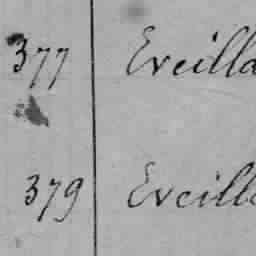 377 Eveilla
379 Eveilla